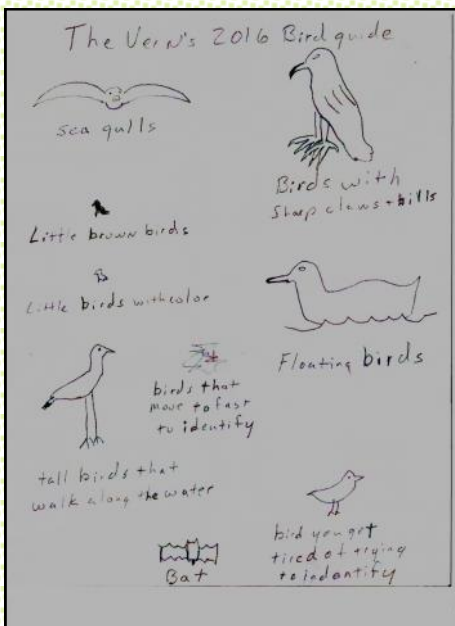 The Vern's 2016 Bird guide
sea gulls
Birds with
sharp claws + bills
Little brown birds
Little birds with color
Floating birds
birds that
move to fast
to identify
tall birds that
walk along the water
bird you get
tired of trying
to indentify
Bat